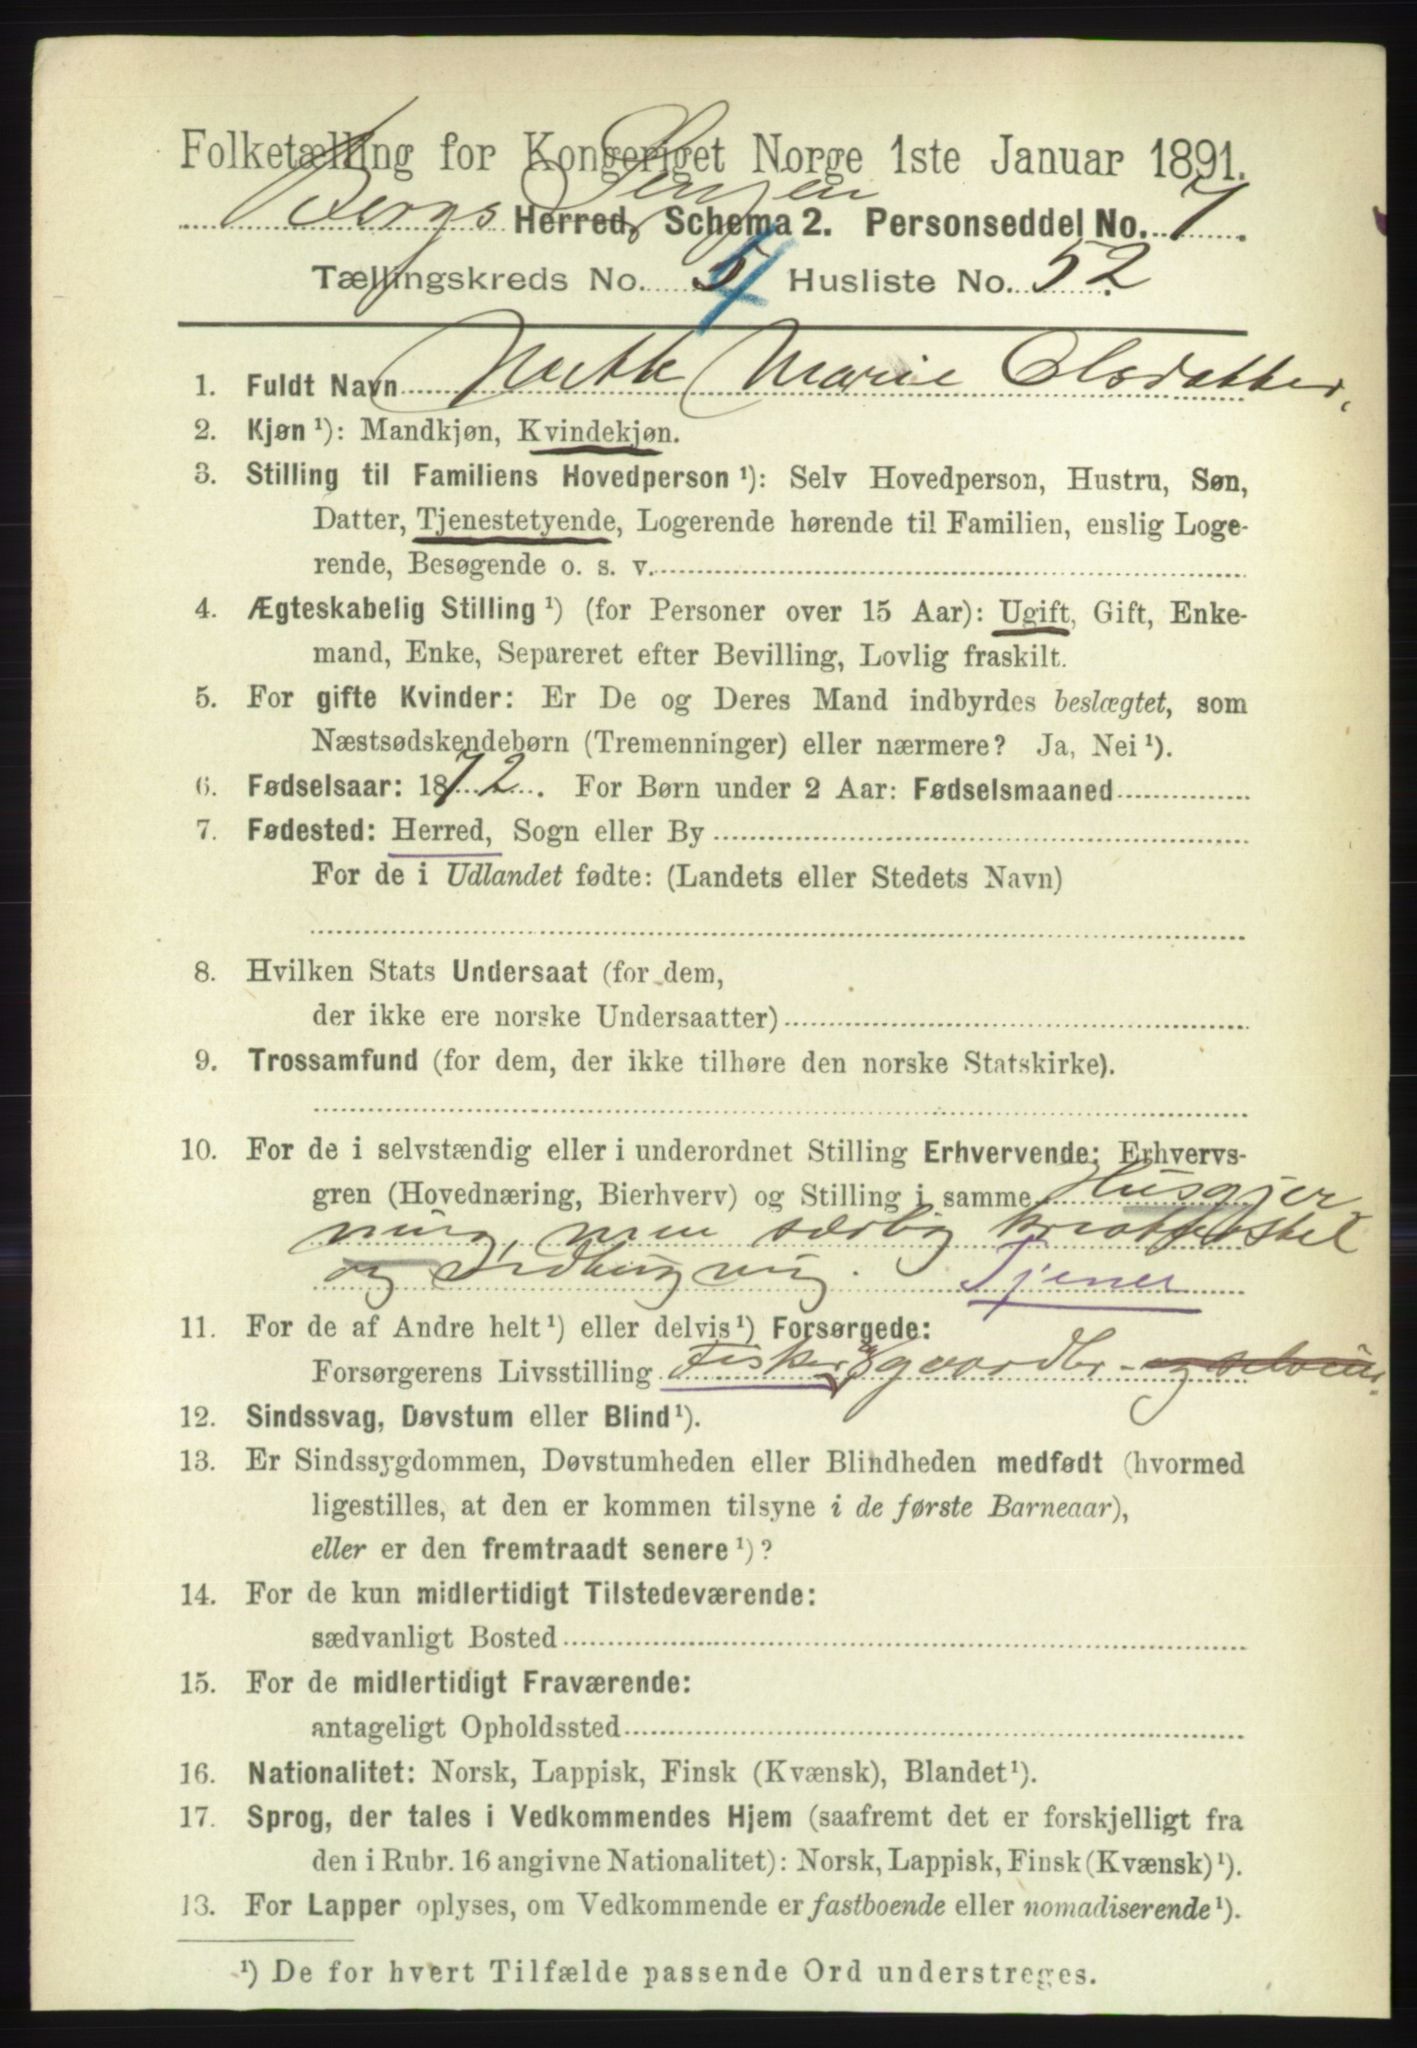 Folketælling for Kongeriget Norge 1ste Januar 1891.
Bergs Herred, Schema 2. Personseddel No. 7.
Senjen
Tællingskreds No. 5 4 Husliste No. 52.
1. Fuldt Navn Marie Olsdatter,
2. Kjøn ¹): Mandkjøn, Kvindekjøn.
3. Stilling til Familiens Hovedperson ¹): Selv Hovedperson, Hustru, Søn,
Datter, Tjenestetyende, Logerende hørende til Familien, enslig Loge-
rende, Besøgende o. s. v.
4. Ægteskabelig Stilling ¹) (for Personer over 15 Aar): Ugift, Gift, Enke-
mand, Enke, Separeret efter Bevilling, Lovlig fraskilt.
5. For gifte Kvinder: Er De og Deres Mand indbyrdes beslægtet, som
Næstsødskendebørn (Tremenninger) eller nærmere? Ja, Nei ¹).
6. Fødselsaar: 1872. For Børn under 2 Aar: Fødselsmaaned
7. Fødested: Herred, Sogn eller By
For de i Udlandet fødte: (Landets eller Stedets Navn)
8. Hvilken Stats Undersaat (for dem,
der ikke ere norske Undersaatter)
9. Trossamfund (for dem, der ikke tilhøre den norske Statskirke).
10. For de i selvstændig eller i underordnet Stilling Erhvervende: Erhvervs-
gren (Hovednæring, Bierhverv) og Stilling i samme Husgjer
ning, men særlig kreaturstel
og Tjener
11. For de af Andre helt ¹) eller delvis ¹) Forsørgede:
Forsørgerens Livsstilling Fisker & gaardbr. og selveier.
12. Sindssvag, Døvstum eller Blind ¹).
13. Er Sindssygdommen, Døvstumheden eller Blindheden medfødt (hvormed
ligestilles, at den er kommen tilsyne i de første Barneaar),
eller er den fremtraadt senere ¹)?
14. For de kun midlertidigt Tilstedeværende:
sædvanligt Bosted
15. For de midlertidigt Fraværende:
antageligt Opholdssted
16. Nationalitet: Norsk, Lappisk, Finsk (Kvænsk), Blandet ¹).
17. Sprog, der tales i Vedkommendes Hjem (saafremt det er forskjelligt fra
den i Rubr. 16 angivne Nationalitet): Norsk, Lappisk, Finsk (Kvænsk) ¹).
13. For Lapper oplyses, om Vedkommende er fastboende eller nomadiserende ¹).
¹) De for hvert Tilfælde passende Ord understreges.